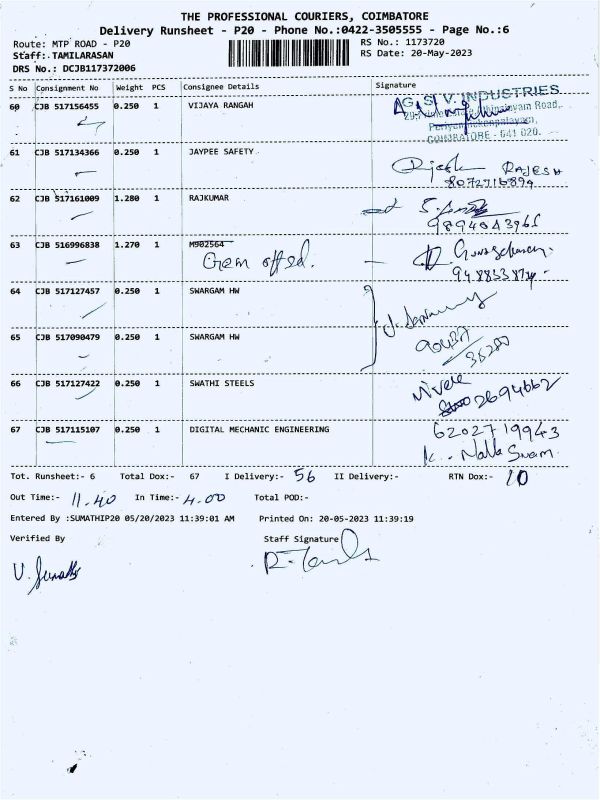 THE PROFESSIONAL COURIERS, COIMBATORE
Delivery Runsheet - P20 - Phone No.:0422-3505555 - Page No.:6
Route: MTP ROAD - P20
RS No.: 1173720
Staff:.TAMILARASAN
RS Date: 20-May-2023
DRS No.: DCJB117372006
S No Consignment No Weight PCS Consignee Details Signature
60 CJB 517156455 0.250 1 VIJAYA RANGAH
INDUSTRIES
COIMBATORE - 641 020.
61 CJB 517134366 0.250 1 JAYPEE SAFETY.
Rajesh RAJESH
8072716894
62 CJB 517161009 1.280 1 RAJKUMAR
9894043961
63 CJB 516996838 1.270 1 M902564
Gem offsed.
64 CJB 517127457 0.250 1 SWARGAM HW
65 CJB 517090479 0.250 1 SWARGAM HW
66 CJB 517127422 0.250 1 SWATHI STEELS
2694662
67 CJB 517115107 0.250 1 DIGITAL MECHANIC ENGINEERING
6202719943
K. Nalla Swam.
Tot. Runsheet:- 6 Total Dox:- 67 I Delivery:- 56 II Delivery:- RTN Dox:- 10
Out Time:- 11.40 In Time:- 4.00 Total POD:-
Entered By :SUMATHIP20 05/20/2023 11:39:01 AM Printed On: 20-05-2023 11:39:19
Verified By Staff Signature